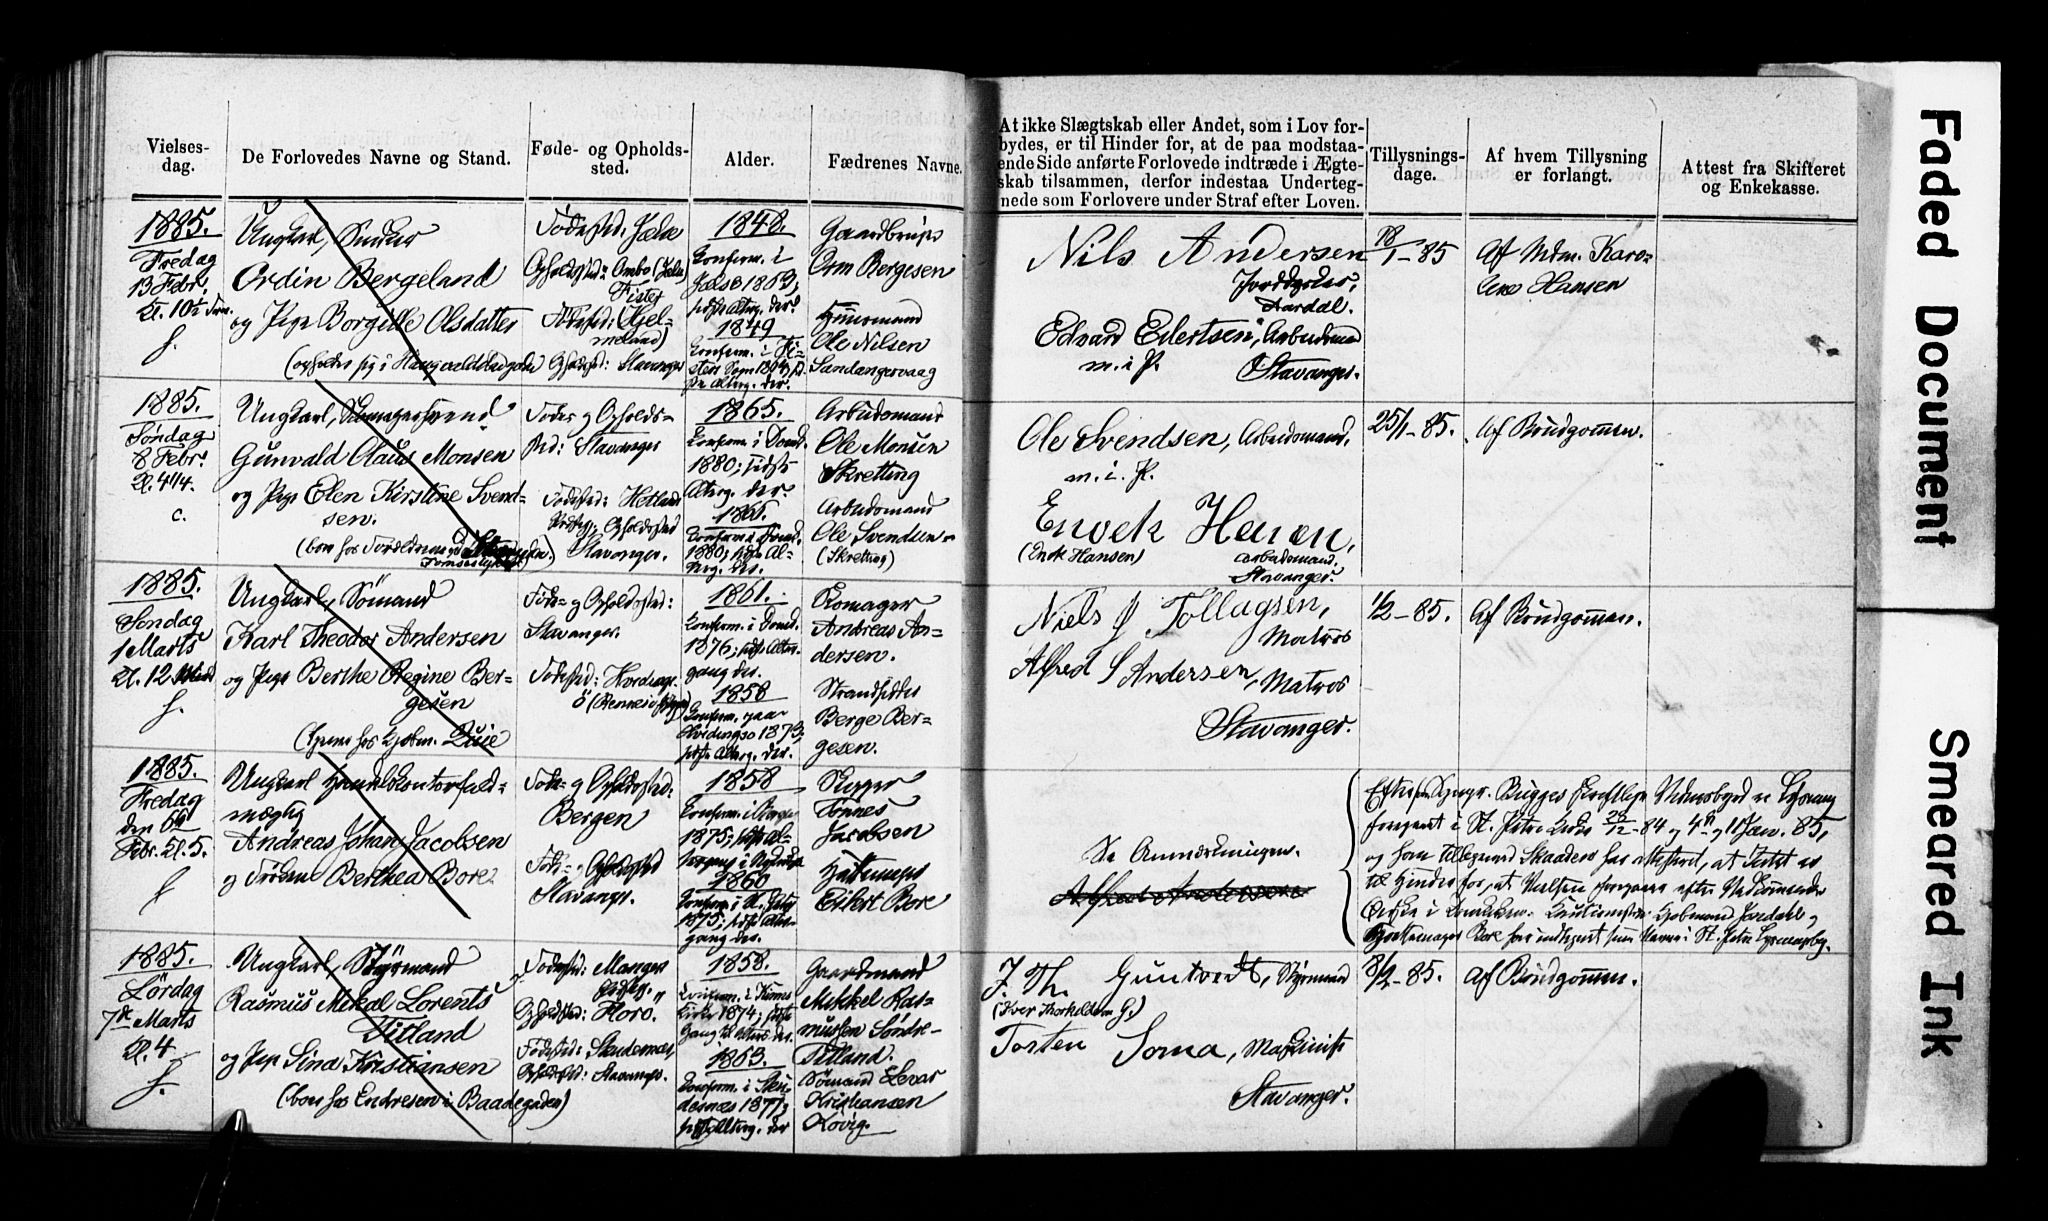 Vielses-
dag.
De Forlovedes Navne og Stand.
Føde- og Opholds-
sted.
Alder.
Fædrenes Navne.
At ikke Slægtskab eller Andet, som i Lov for-
bydes, er til Hinder for, at de paa modstaa-
ende Side anførte Forlovede indtræde i Ægte-
skab tilsammen, derfor indestaa Underteg-
nede som Forlovere under Straf efter Loven.
Tillysnings-
dage.
Af hvem Tillysning
er forlangt.
Attest fra Skifteret
og Enkekasse.
1885.
Fredag
13 Febr.
Kl. 10½ Form.
f.
Ungkarl,
Ordin Bergeland
og Pige Borgille Olsdatter
Fødested: Jælse
Opholdssted: Ombo (Jelse)
Fister
Fødested: Hjel-
meland)
Opholdsted: Stavanger
1848.
Konferm. i
Jælse 1863;
sidste Altrg. der.
1849
Konferm. i Fi-
ster Sogn
Altrg. der.
Gaardbruger
Orm Bergesen
Huusmand
Ole Nilsen
Sandangervaag
Nils Andersen
Jorddyrker,
Aardal.
Edvard Eilertsen, Arbeidsmand
m. i P.
Stavanger.
18/1-85
Af Mdm. Karo-
line Hansen
1885.
Søndag
8 Febr.
Kl. 4¼.
c.
Ungkarl,
Gunvald Claus Monsen
og Pige Elen Kirstine Svend-
sen.
(bor hos Forældrene
Føde- og Opholds-
sted: Stavanger
Fødested: Hetland
Præstegj. Opholdssted
Stavanger.
1865.
Konferm. i Domk.
1880; sidste
Altrg. der.
1865.
Konferm. i Domk.
1880; sidste Al-
terg. der.
Arbeidsmand
Ole Monsen
Skretting
Arbeidsmand
Ole Svendsen
(Skretting)
Ole Svendsen, Arbeidsmand,
m. i. P.
Enoek Hansen,
(Enok Hansen)
Arbeidsmand.
Stavanger.
25/1-85.
Af Brudgommen.
1885.
Søndag
1 Marts
Kl. 12 Middag
f.
Ungkarl, Sømand
Karl Theodor Andersen
og Pige Berthe Regine Ber-
gesen
(tjener hos Kjøbm. Quie)
Føde- og Opholdssted:
Stavanger.
Fødested: Hordnæs-
ö (Rennesø
1861.
Konferm. i Domk.
1876; sidste Alter-
gang der.
1858
Konferm. paa
Hvidingsø 1873;
sidste Altrg. der.
Romager
Andreas An-
dersen.
Strandsidder
Berge Ber-
gesen.
Niels J Tollagsen,
Matros
Alfred S Andersen, Matros
Stavanger.
1/2-85.
Af Brudgommen.
1885.
Fredag
den 6te
Febr. Kl. 5.
f
Ungkarl Handelskontorfuld-
mægtig
Andreas Johan Jacobsen
og Frøken Berthea Bore
Føde- og Opholdssted:
Bergen
Føde- og Opholdssted
Stavanger.
1858
Konferm. i Bergen
1875; sidste Al-
1860
Konferm. i St. Petri
1875; sidste Alter-
gang der.
Skipper
Tønnes
Jacobsen
Eilert Bore
Se Anmerkningen.
Alfred Andersen
Efter Sogpr. Bugges skriftlige Vidnesbyrd er Lysning
foregaaet i St. Petri Kirke 28/12-84 og 4de og 11 Jan. 85,
og have tillige med Skaaden har attesteret, at Intet er
til Hinder for, at Vielsen foregaar efter Vedkommendes
Ønske i Domkirken. Cautionister Kjøbmand Jordahl og
Bore har indtegnet sine Navne i St. Petri Lysningsbog.
1885.
Lørdag
7de Marts
Kl. 4
f.
Ungkarl, Styrmand
Rasmus Mekal Lorents
Titland
og Pige Sina Kristiansen
(bor hos Endresen i Baadegaden)
Fødested: Manger
Præstegj.
Opholdsted: Florø.
Fødested: Skudenæs,
Opholdsted: Stavanger.
1858.
Konferm. i Kinns
Kirke 1874; sidste
Gang til Alters der.
1863.
Konferm. i Sku-
desnæs 1877;
sidste Altrg. der
Gaardmand
Mikkel Ras-
mussen Søndre-
Titland.
Sømand Elevar
Kristiansen
Kovig.
J. Th. Guntvedt, Styrmand
(Iver Thorkildsen G.)
Torsten Soma, Maskinist
Stavanger.
8/2-85.
Af Brudgommen.
Faded Document
Smeared Ink